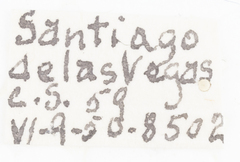 Santiago
de las Vegas
c. S. 59
VI-9-50-8502